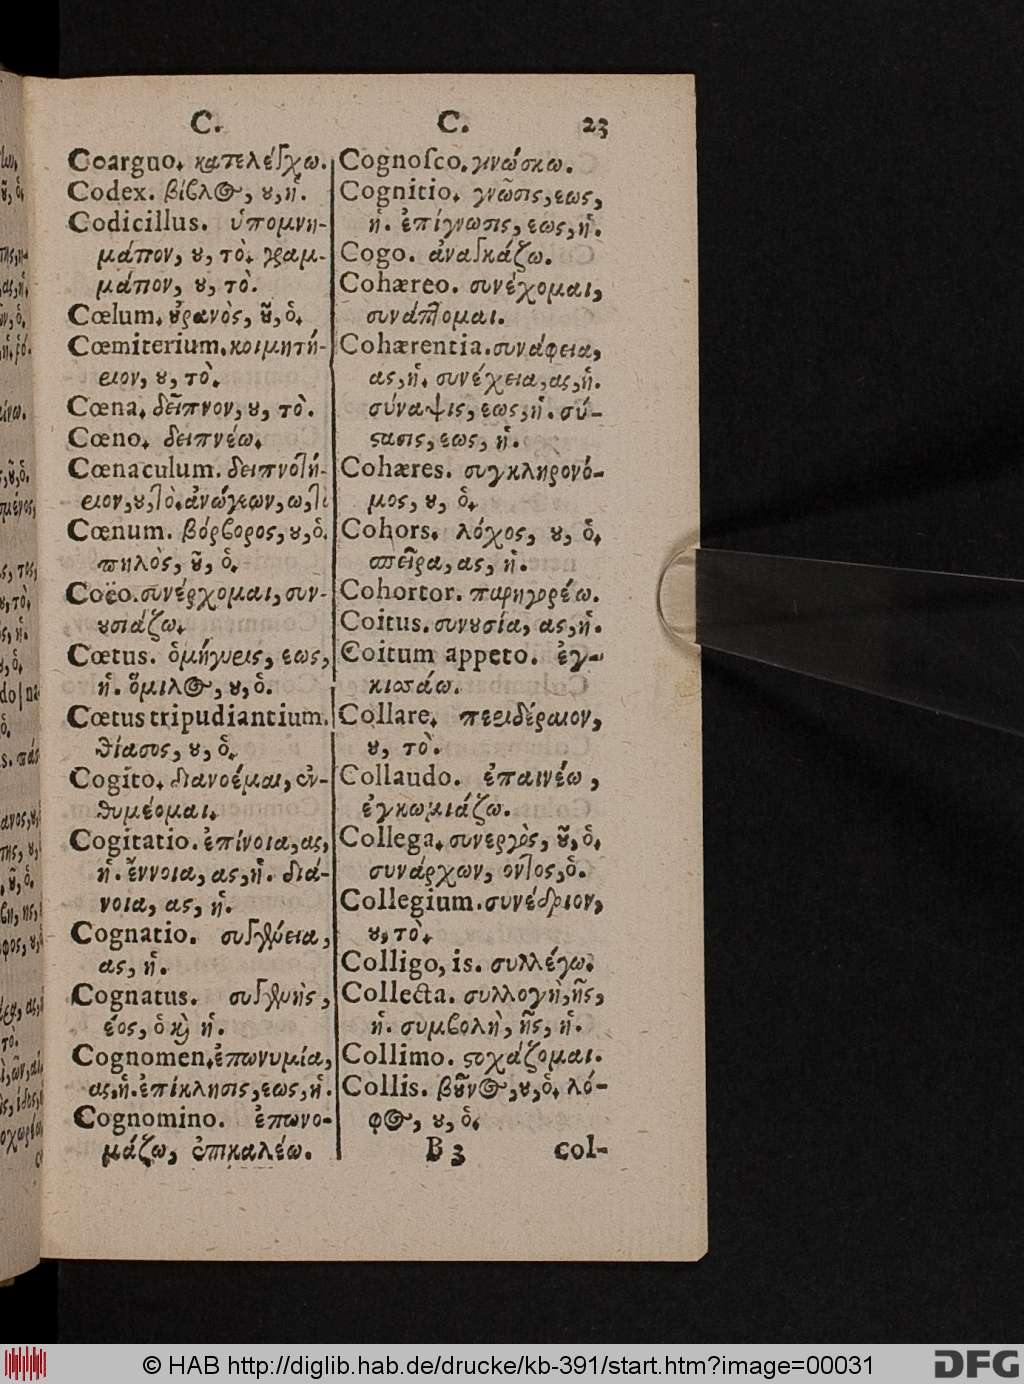 C. C. 23
Coarguo. κατελέγχω.
Codex. βίβλος, ου, ἡ.
Codicillus. ὑπομνη-
μάτιον, ου, τὸ. γραμ-
μάτιον, ου, τὸ.
Cœlum. οὐρανὸς, οῦ, ὁ.
Cœmiterium. κοιμητή-
ριον, ου, τὸ.
Cœna. δεῖπνον, ου, τὸ.
Cœno. δειπνέω.
Cœnaculum. δειπνοτή-
ριον, ου, τὸ. ἀνώγεων, ω, τὸ
Cœnum. βόρβορος, ου, ὁ.
πηλὸς, οῦ, ὁ.
Coëo. συνέρχομαι, συν-
ουσιάζω.
Cœtus. ὁμήγυρις, εως,
ἡ. ὅμιλος, ου, ὁ.
Cœtus tripudiantium.
θίασος, ου, ὁ.
Cogito. διανοέομαι, ἐν-
θυμέομαι.
Cogitatio. ἐπίνοια, ας,
ἡ. ἔννοια, ας, ἡ. διά-
νοια, ας, ἡ.
Cognatio. συγγένεια,
ας, ἡ.
Cognatus. συγγενὴς,
έος, ὁ καὶ ἡ.
Cognomen. ἐπωνυμία,
ας, ἡ. ἐπίκλησις, εως, ἡ.
Cognomino. ἐπωνο-
μάζω, ἐπικαλέω.
Cognoſco. γινώσκω.
Cognitio. γνῶσις, εως,
ἡ. ἐπίγνωσις, εως, ἡ.
Cogo. ἀναγκάζω.
Cohæreo. συνέχομαι,
συνάπτομαι.
Cohærentia. συνάφεια,
ας, ἡ. συνέχεια, ας, ἡ.
σύναψις, εως, ἡ. σύ-
στασις, εως, ἡ.
Cohæres. συγκληρονό-
μος, ου, ὁ.
Cohors. λόχος, ου, ὁ.
σπεῖρα, ας, ἡ.
Cohortor. παρηγορέω.
Coitus. συνουσία, ας, ἡ.
Coitum appeto. ἐγ-
κισσάω.
Collare. περιδέραιον,
ου, τὸ.
Collaudo. ἐπαινέω,
ἐγκωμιάζω.
Collega. συνεργὸς, οῦ, ὁ.
συνάρχων, οντος, ὁ.
Collegium. συνέδριον,
ου, τὸ.
Colligo, is. συλλέγω.
Collecta. συλλογὴ, ῆς,
ἡ. συμβολὴ, ῆς, ἡ.
Collimo. στοχάζομαι.
Collis. βοῦνος, ου, ὁ. λό-
φος, ου, ὁ.
B 3 col-
© HAB http://diglib.hab.de/drucke/kb-391/start.htm?image=00031
DFG